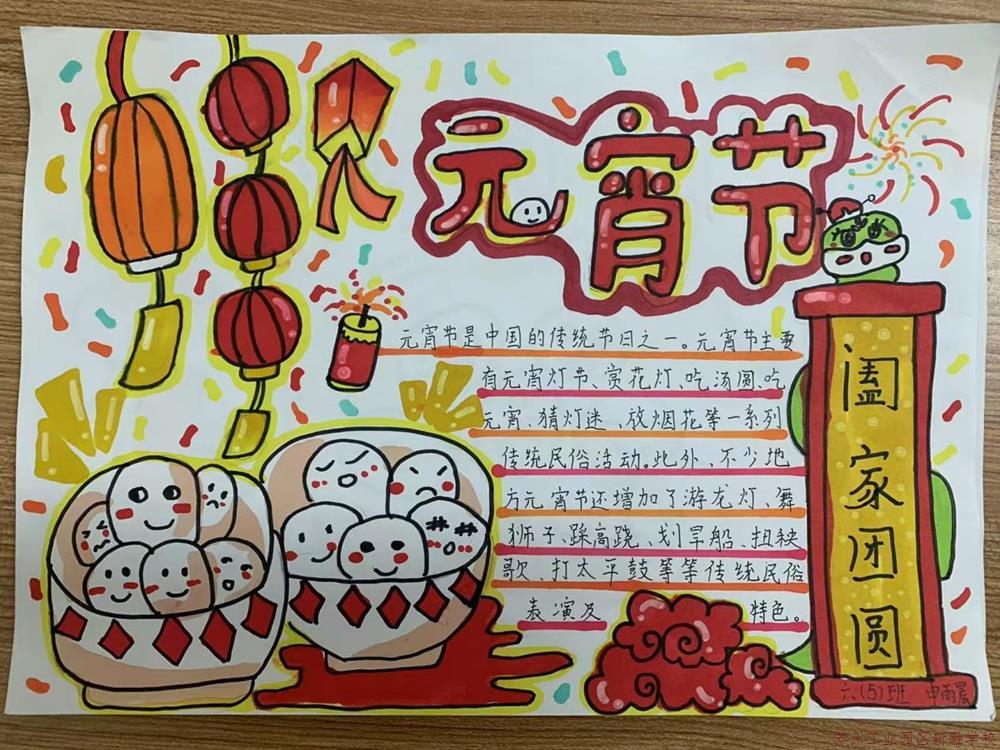 元宵节
元宵节是中国的传统节日之一。元宵节主要
有元宵灯节、赏花灯、吃汤圆、吃
元宵、猜灯迷、放烟花等一系列
传统民俗活动。此外、不少地
方元宵节还增加了游龙灯、舞
狮子、踩高跷、划旱船、扭秧
歌、打太平鼓等等传统民俗
表演及 特色。
阖家团圆
六(5)班 申雨宸